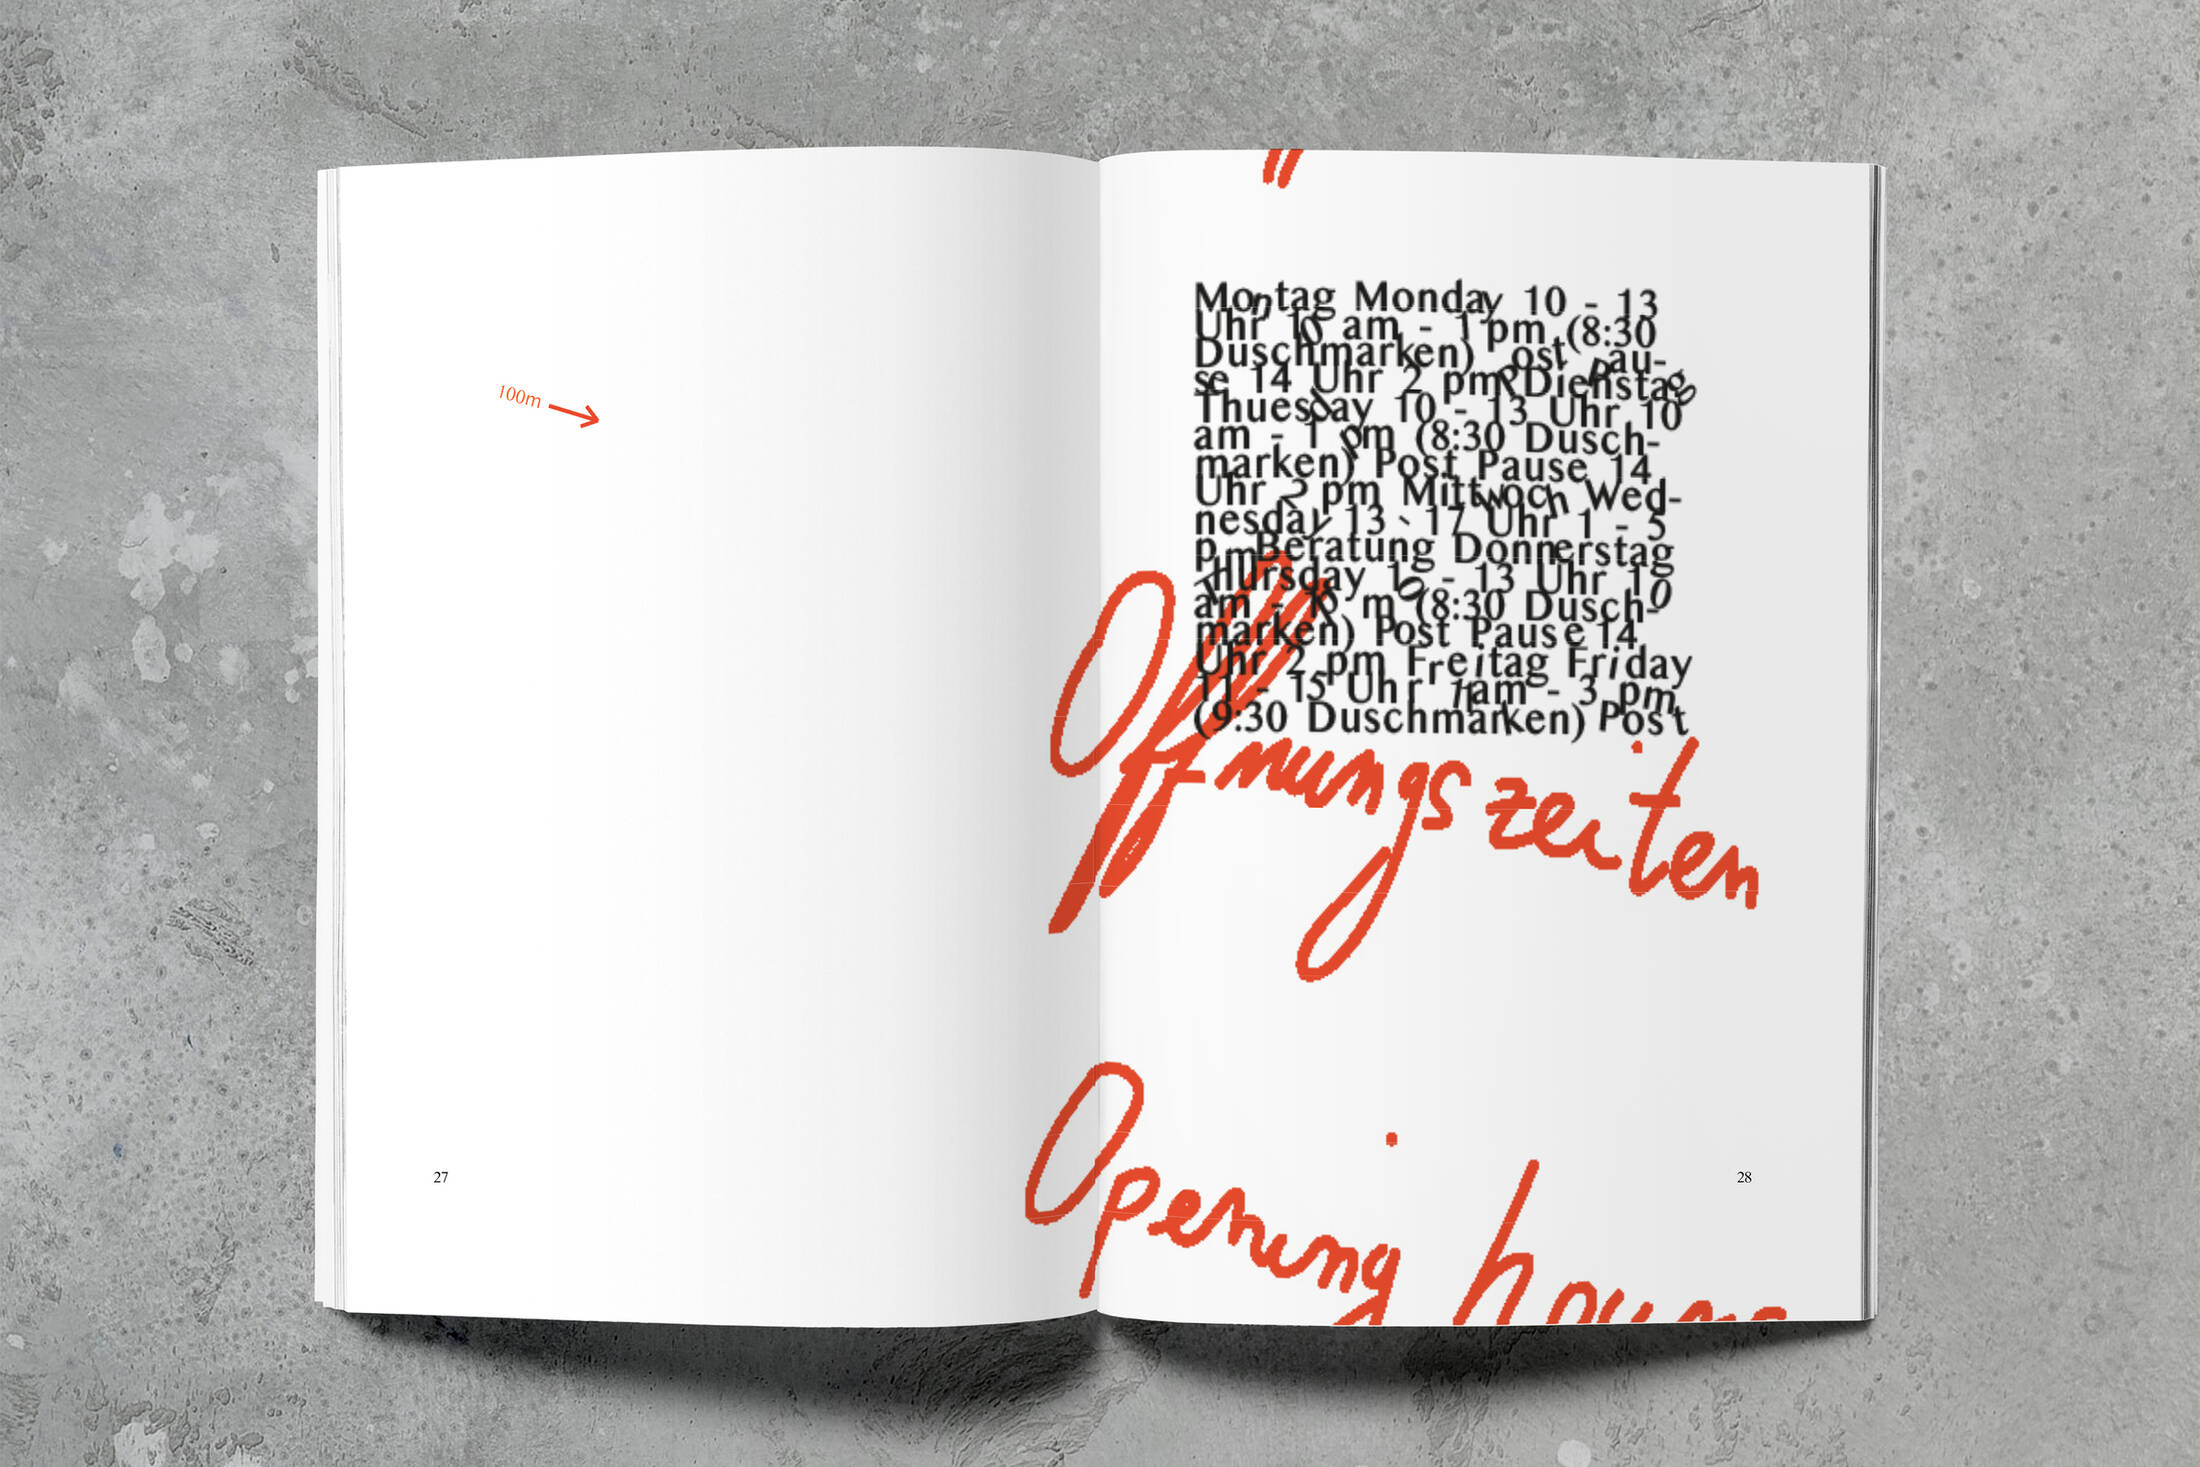 100m
27
Montag Monday 10 - 13
Uhr 10 am - 1 pm (8:30
Duschmarken) Post Pau-
se 14 Uhr 2 pm Dienstag
Thuesday 10 - 13 Uhr 10
am - 1 pm (8:30 Dusch-
marken) Post Pause 14
Uhr 2 pm Mittwoch Wed-
nesday 13 - 17 Uhr 1 - 5
pm Beratung Donnerstag
Thursday 10 - 13 Uhr 10
am - m (8:30 Dusch-
marken) Post Pause 14
Uhr 2 pm Freitag Friday
11 - 15 Uhr 11am - 3 pm
(9:30 Duschmarken) Post
Offnungszeiten
Opening hours
28